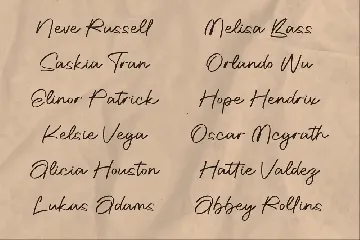 Neve Russell
Saskia Tran
Elinor Patrick
Kelsie Vega
Alicia Houston
Lukas Adams
Melisa Bass
Orlando Wu
Hope Hendrix
Oscar Mcgrath
Hattie Valdez
Abbey Rollins